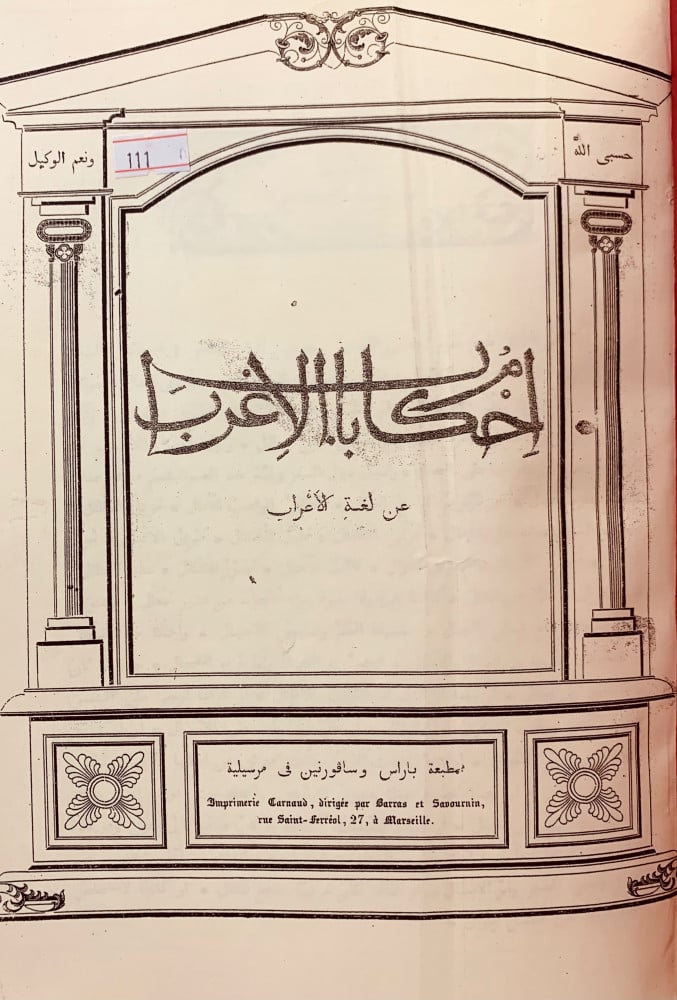 حسبى الله
ونعم الوكيل
111
احكام باب الاعراب
عن لغة الأعراب
بمطبعة باراس وساڤورنين فى مرسيلية
Imprimerie Carnaud, dirigée par Barras et Savournin,
rue Saint-Ferréol, 27, à Marseille.